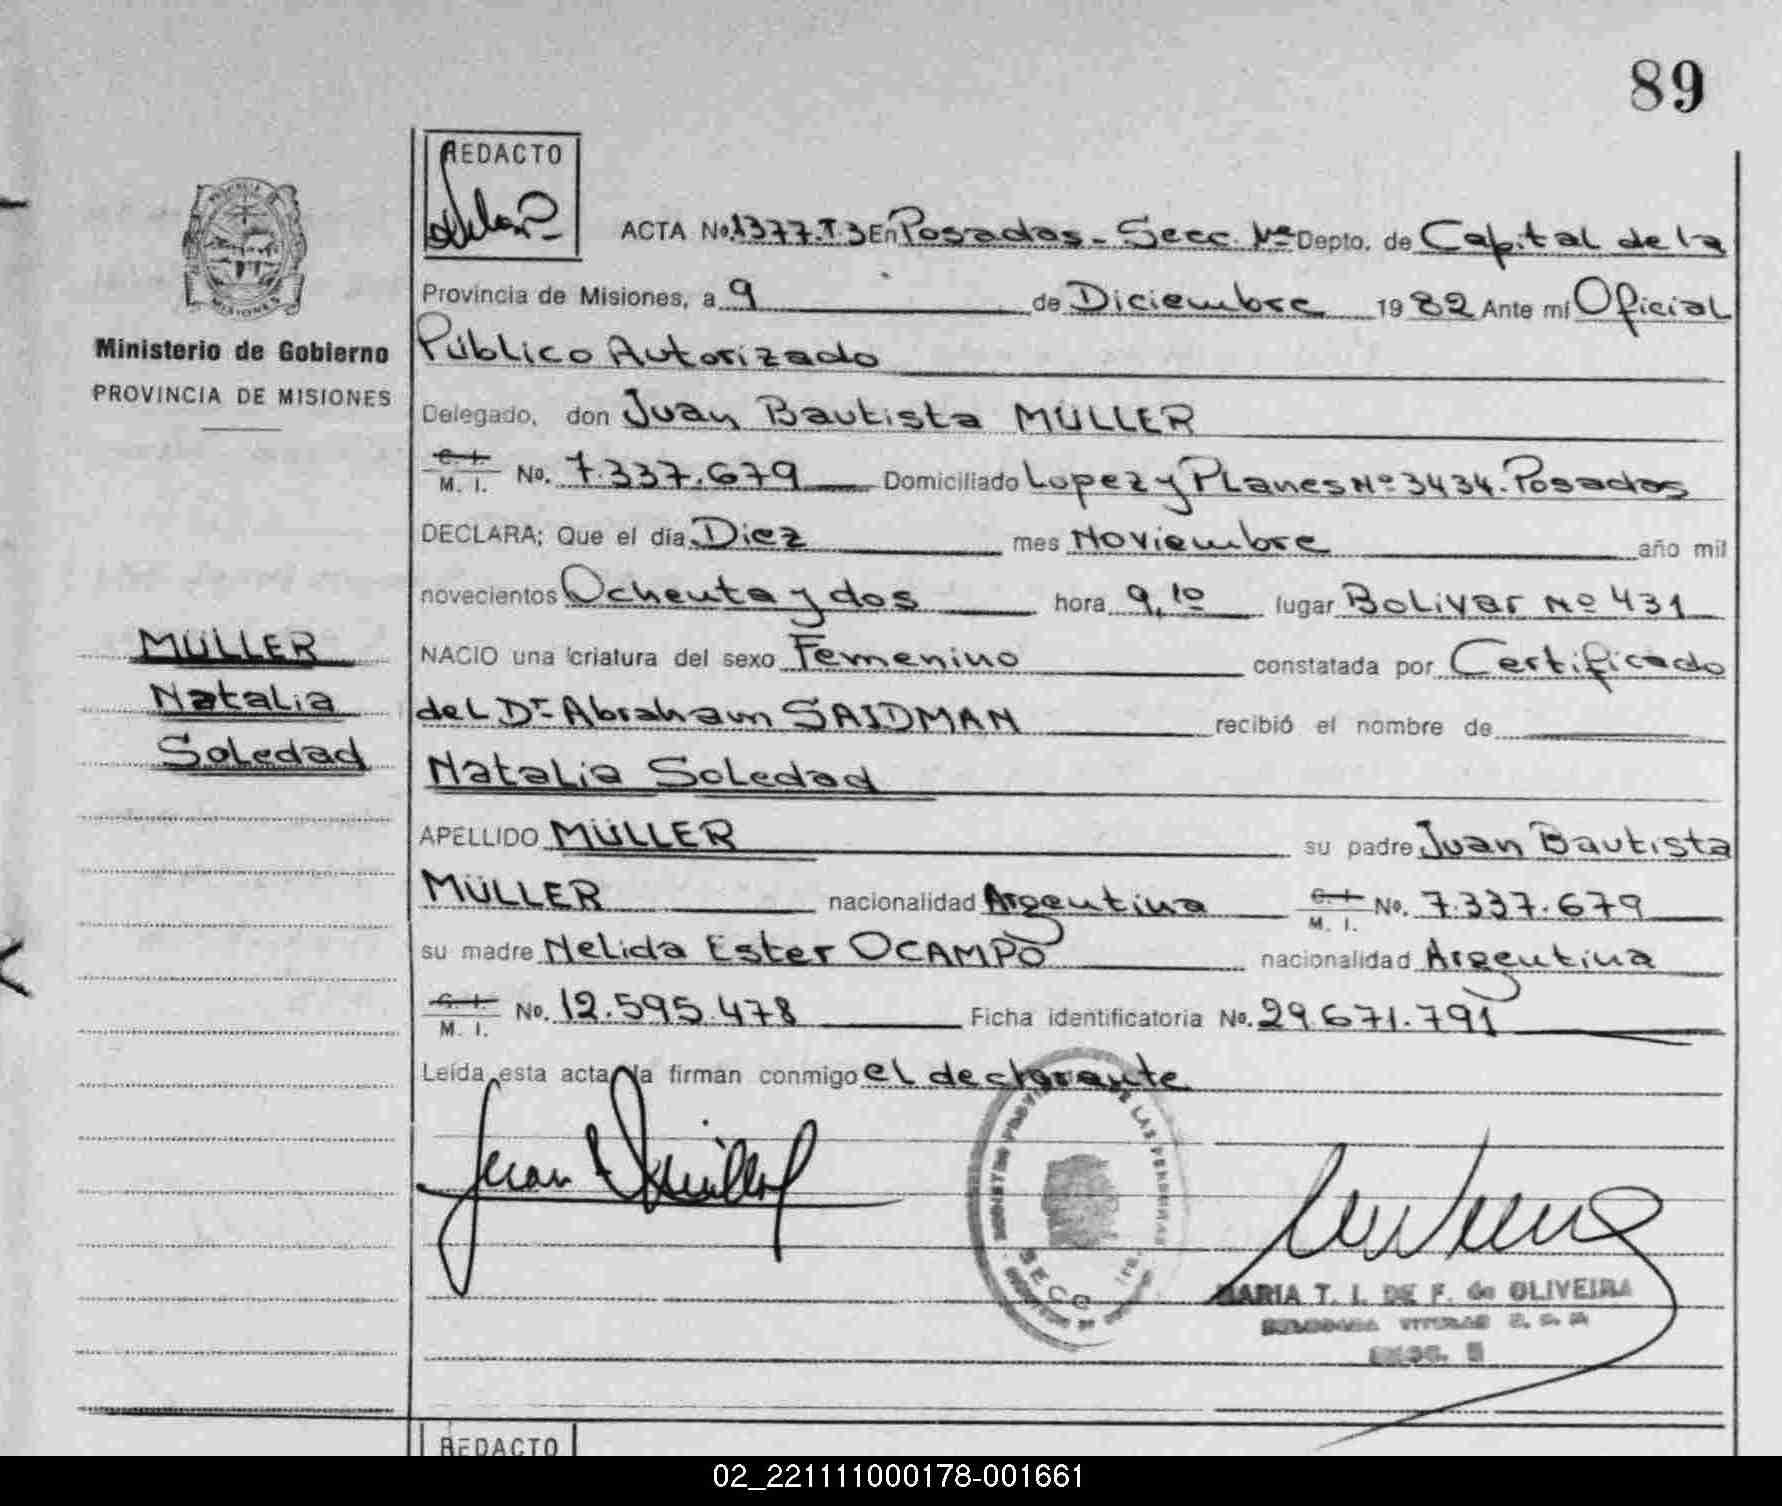 89
REDACTO
ACTA No. 1377.T.3 En Posadas - Secc. 1ra Depto. de Capital de la
Provincia de Misiones, a 9 de Diciembre 1982 Ante mí Oficial
Ministerio de Gobierno
Público Autorizado
PROVINCIA DE MISIONES
Delegado, don Juan Bautista MÜLLER
C. I. M. I. No. 7.337.679 Domiciliado Lopez y Planes Nº 3434. Posadas
DECLARA; Que el día Diez mes Noviembre año mil
novecientos Ochenta y dos hora 9,10 lugar Bolivar Nº 431
MÜLLER
NACIO una criatura del sexo Femenino constatada por Certificado
Natalia
del Dr Abraham SAIDMAN recibió el nombre de
Soledad
Natalia Soledad
APELLIDO MÜLLER su padre Juan Bautista
MÜLLER nacionalidad Argentina C. I. M. I. No. 7.337.679
su madre Nelida Ester OCAMPO nacionalidad Argentina
C. I. M. I. No. 12.595.478 Ficha identificatoria No. 29.671.791
Leída esta acta la firman conmigo el declarante
Juan Müller
MARIA T. I. DE F. de OLIVEIRA
REDACTO
02_221111000178-001661